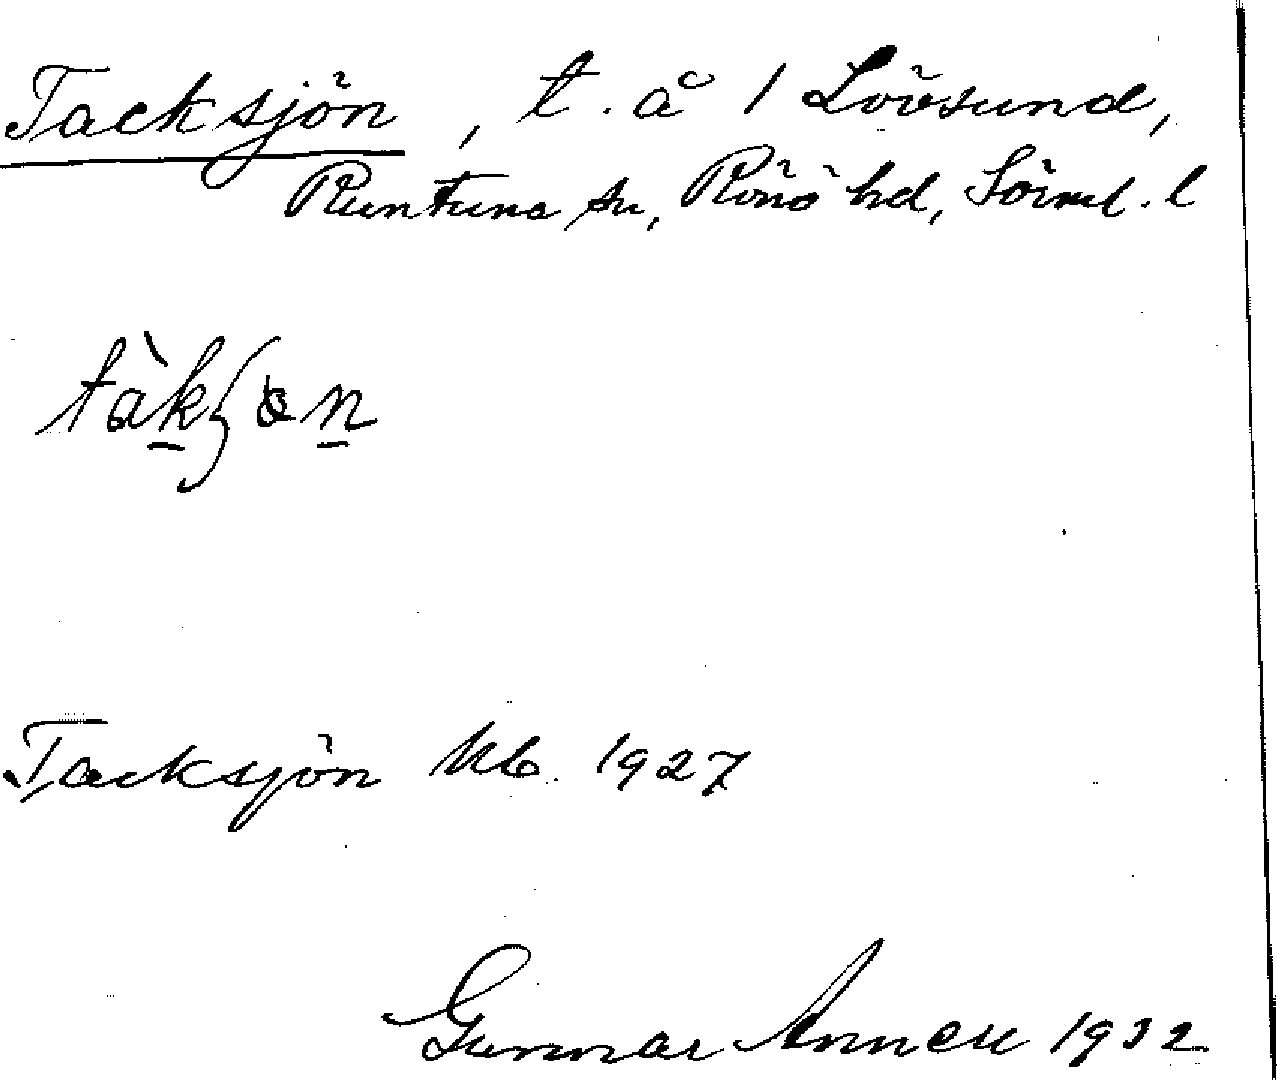 Tacksjön, t. å 1 Lövsund,
Runtuna sn, Rönö hd, Sörml. l
Tacksjön Kb. 1927
Gunnar Annell 1932